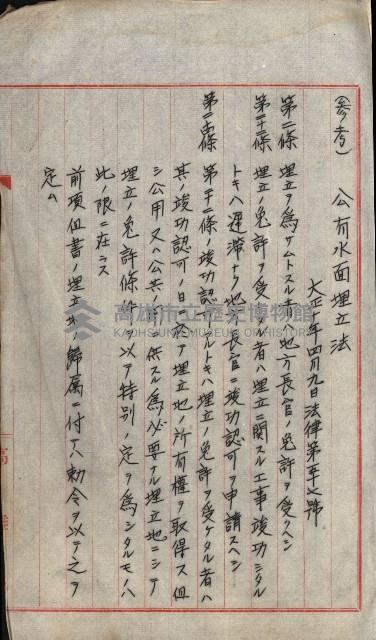 (参考) 公有水面埋立法
大正十年四月九日法律第五七號
第二條 埋立ヲ為サムトスル者ハ地方長官ノ免許ヲ受クヘシ
第二十二條 埋立ノ免許ヲ受ケタル者ハ埋立ニ関スル工事竣功シタル
トキハ遅滞ナク地方長官ニ竣功認可ヲ申請スヘシ
第二十四條 第二十二條ノ竣功認可アリタルトキハ埋立ノ免許ヲ受ケタル者ハ
其ノ竣功認可ノ日ニ於テ埋立地ノ所有權ヲ取得ス但
シ公用又ハ公共ノ用ニ供スル為必要ナル埋立地ニシテ
埋立ノ免許條件ヲ以テ特別ノ定ヲ為シタルモノハ
此ノ限ニ在ラス
前項但書ノ埋立地ノ歸属ニ付テハ勅令ヲ以テ之ヲ
定ム
高雄市立歷史博物館
KAOHSIUNG MUSEUM OF HISTORY
高